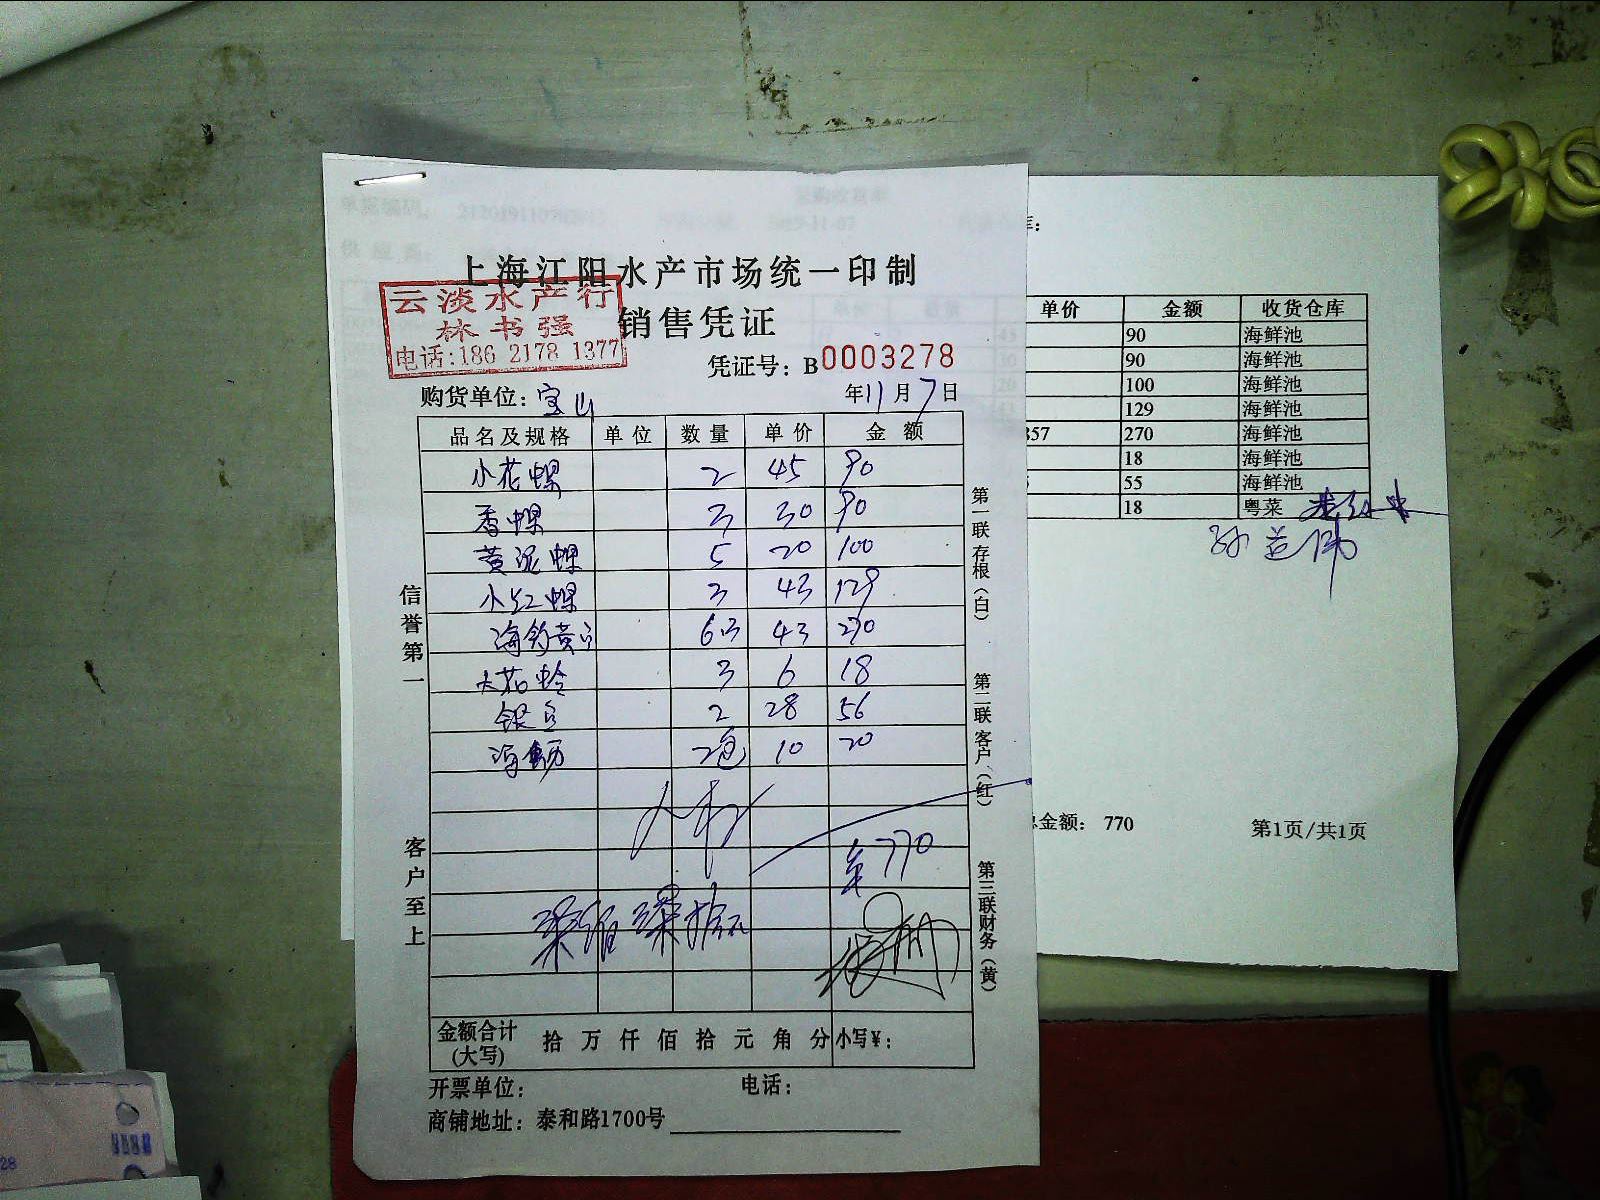 上海江阳水产市场统一印制
云淡水产行
林书强
电话:186 2178 1377
销售凭证
凭证号: B0003278
购货单位: 宝山
年11月7日
品名及规格 单位 数量 单价 金额
小花螺 2 45 90
香螺 3 30 90
黄泥螺 5 20 100
小红螺 3 43 129
海钓黄 43 270
大花蛤 3 6 18
银 2 28 56
海蛎 2包 10 20
770
信誉第一
客户至上
第一联存根(白)
第二联客户(红)
第三联财务(黄)
金额合计(大写) 拾万仟佰拾元角分 小写¥:
开票单位: 电话:
商铺地址: 泰和路1700号
单价 金额 收货仓库
90 海鲜池
90 海鲜池
100 海鲜池
129 海鲜池
357 270 海鲜池
18 海鲜池
55 海鲜池
18 粤菜
总金额: 770
第1页/共1页
28